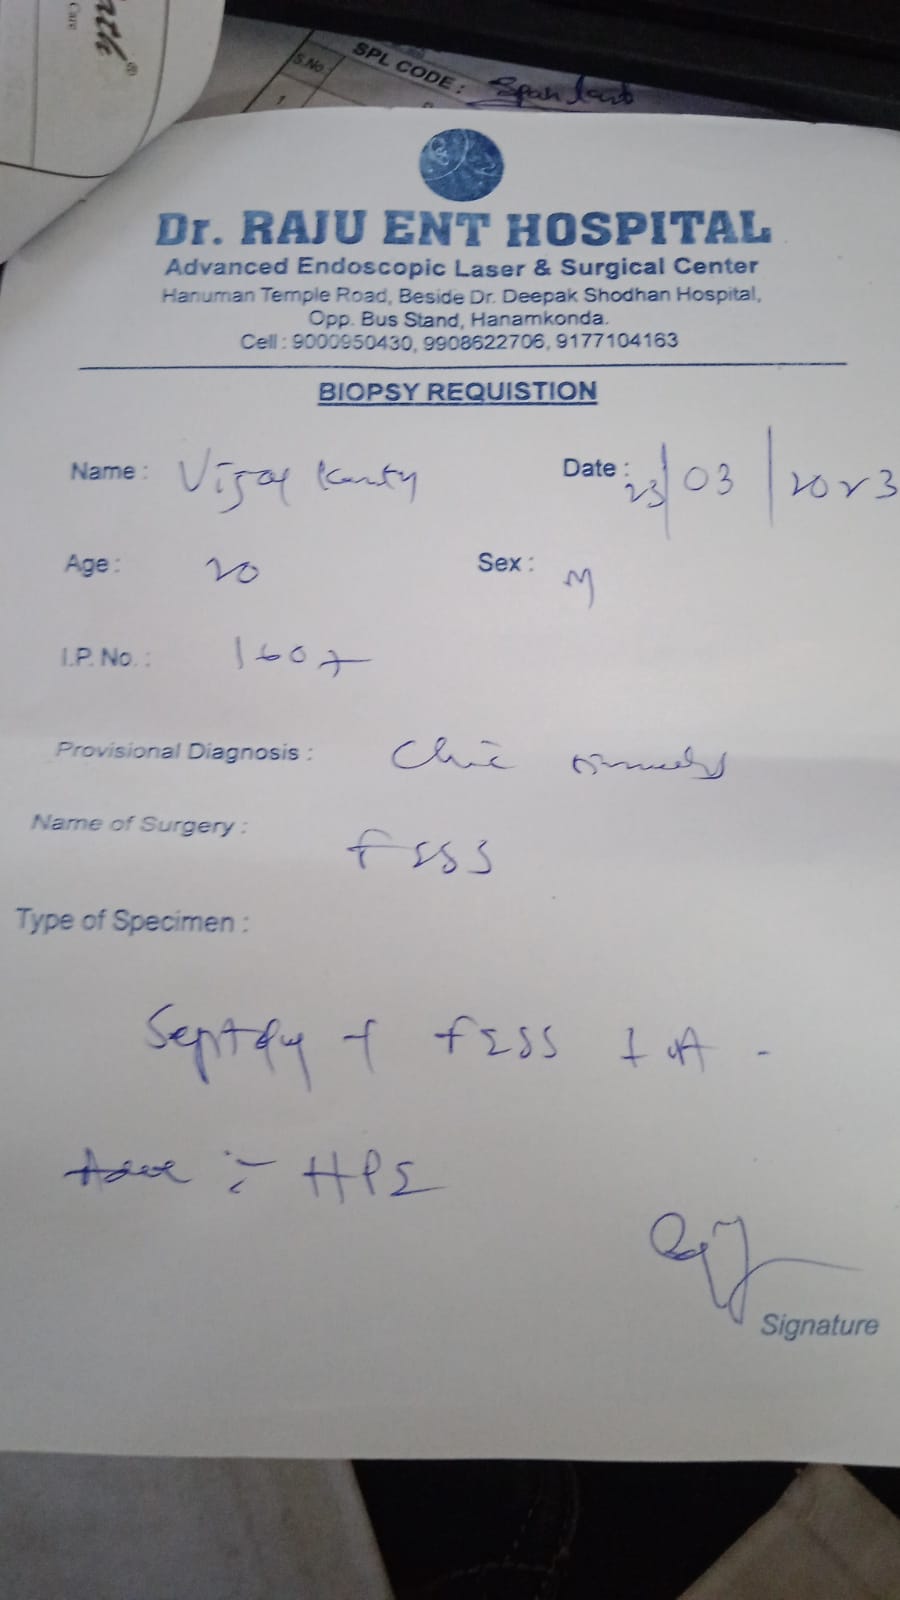 S.No
SPL CODE :
1
Care
Dr. RAJU ENT HOSPITAL
Advanced Endoscopic Laser & Surgical Center
Hanuman Temple Road, Beside Dr. Deepak Shodhan Hospital,
Opp. Bus Stand, Hanamkonda.
Cell : 9000950430, 9908622706, 9177104163
BIOPSY REQUISTION
Name : Vijay Date : 23/03/2023
Age : 20 Sex : M
I.P. No. : 1607
Provisional Diagnosis :
Name of Surgery :
FESS
Type of Specimen :
FESS
HPE
Signature